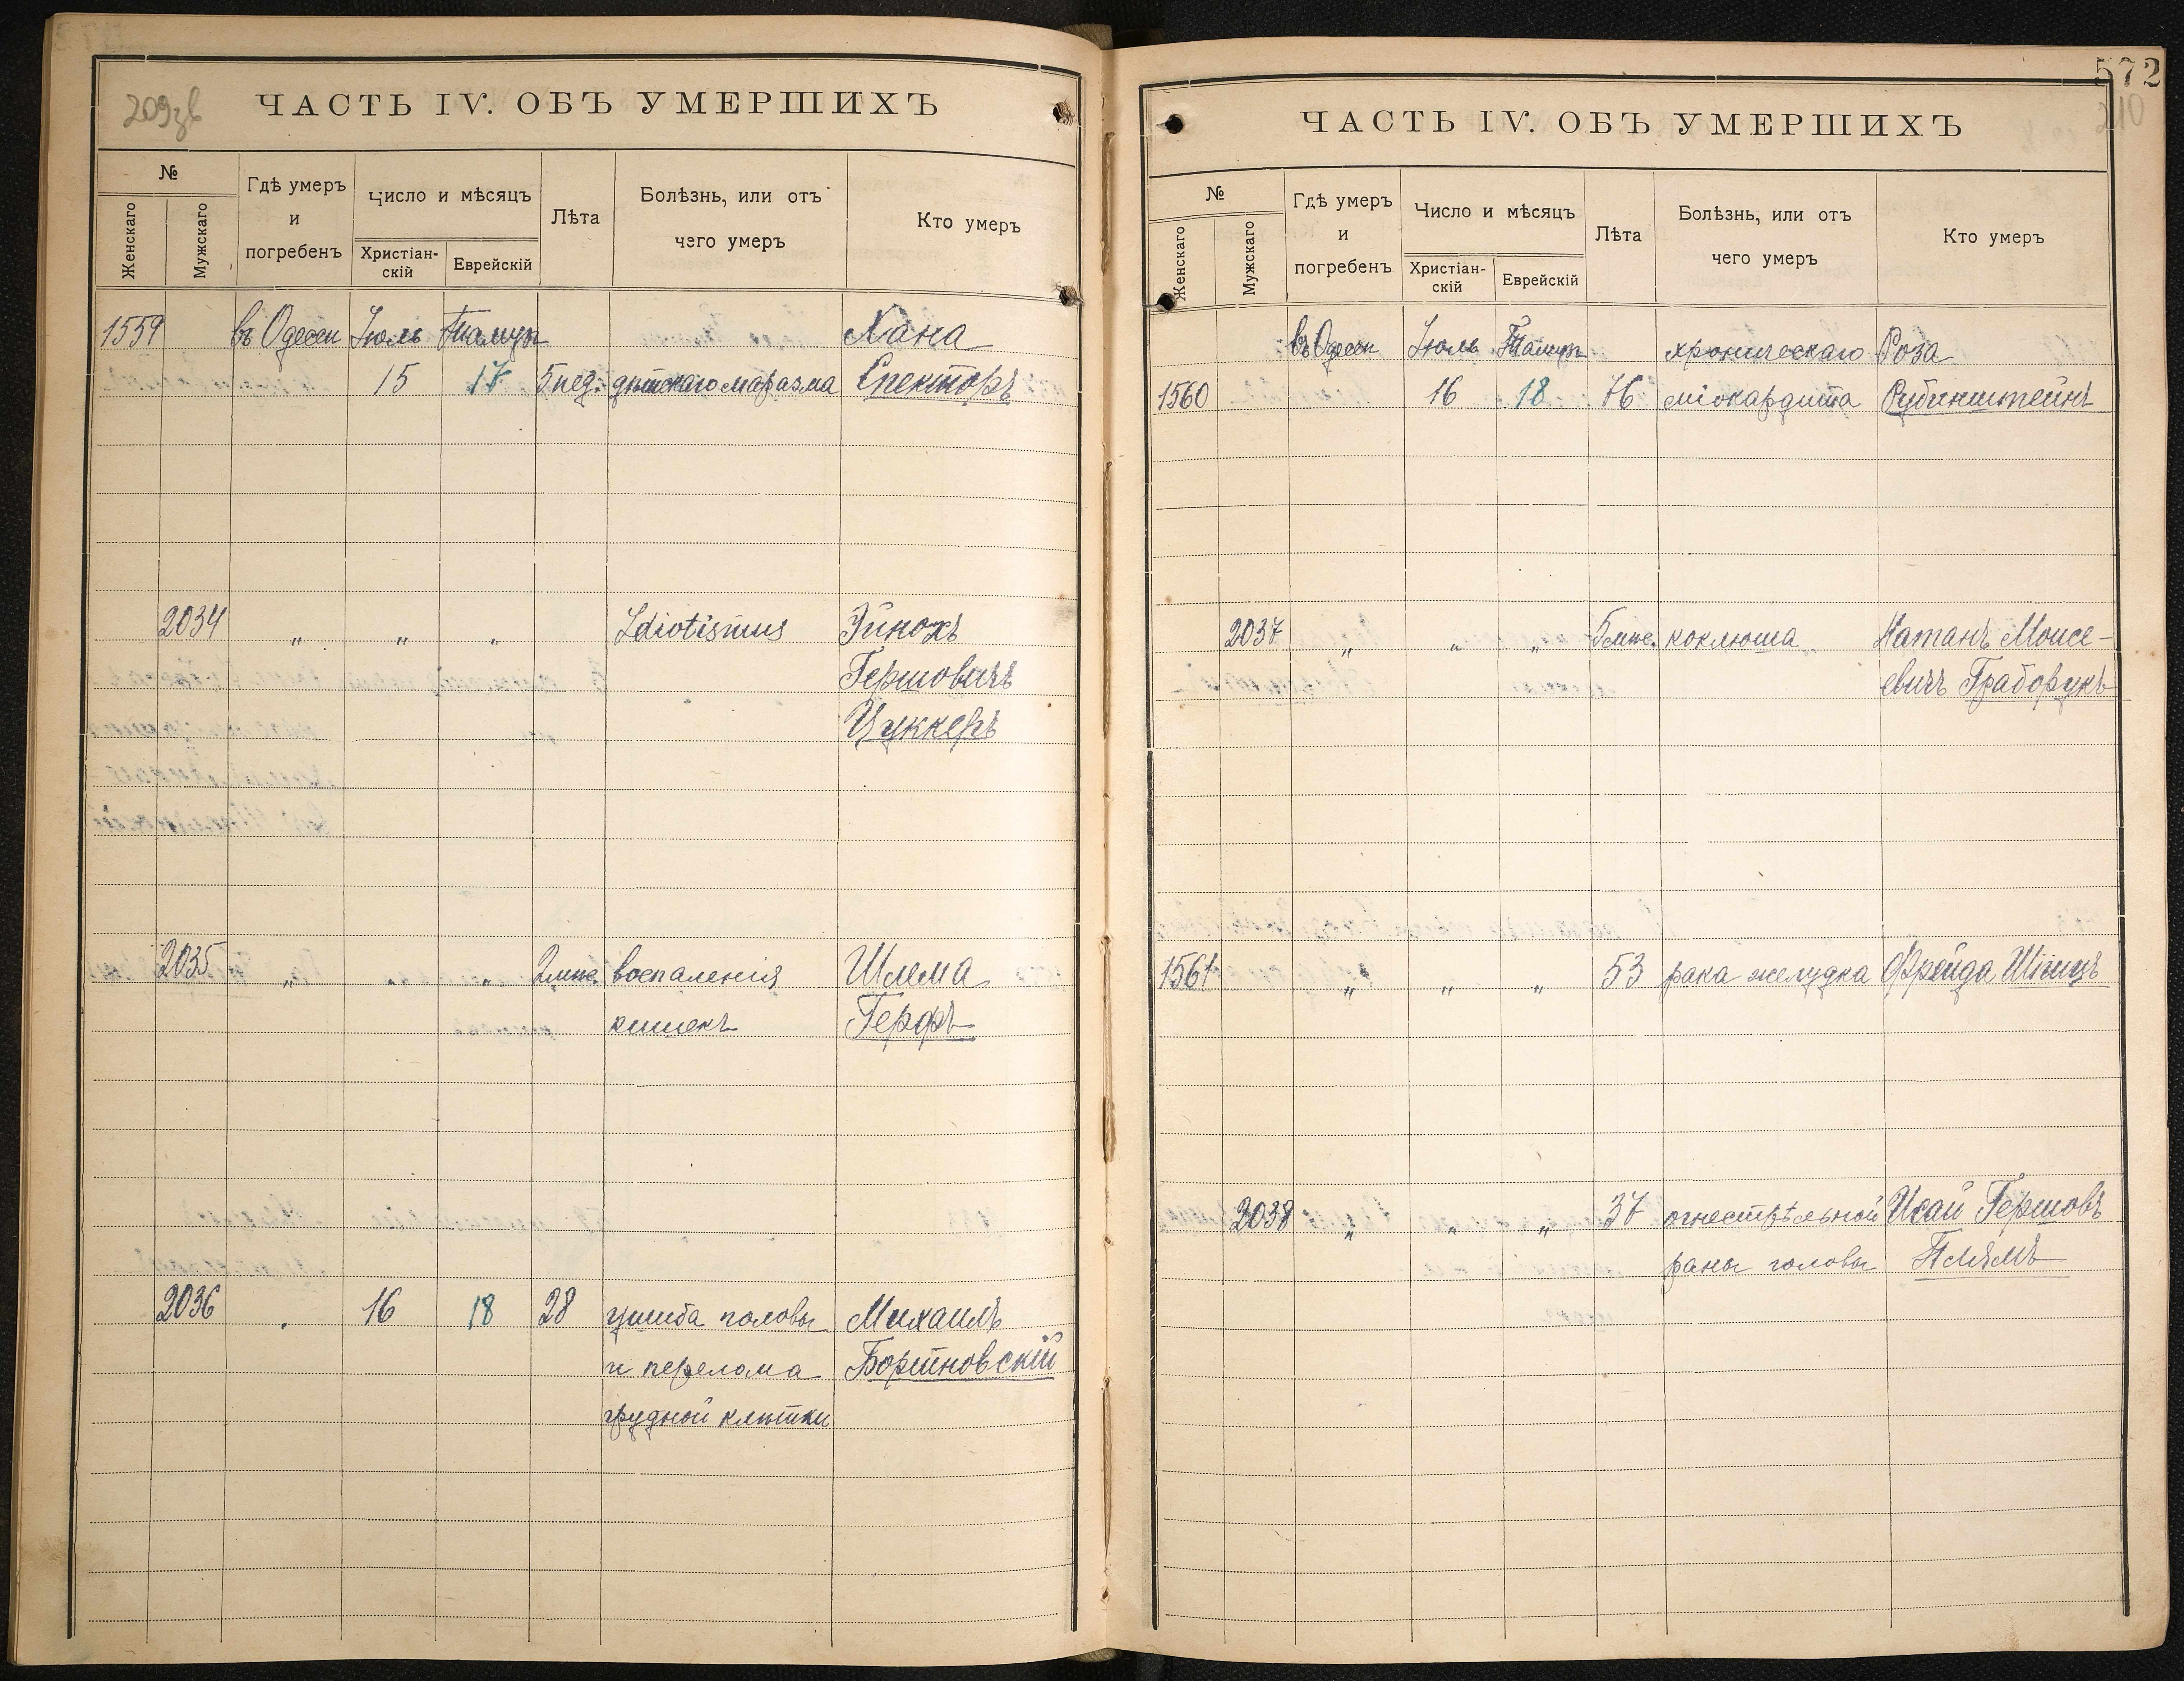 209зв
ЧАСТЬ IV. ОБЪ УМЕРШИХЪ
№
Женскаго
Мужскаго
Гдѣ умеръ
и
погребенъ
Число и мѣсяцъ
Христіан-
скій
Еврейскій
Лѣта
Болѣзнь, или отъ
чего умеръ
Кто умеръ
1559 въ Одессѣ Іюль Тамузъ Хана
15 17 5 нед. дѣтскаго маразма Спекторъ
2034 „ „ „ Idiotismus Эйнохъ
Гершовичъ
Цуккеръ
2035 „ „ „ 2 мѣс. воспаленія Шлема
кишекъ Герфъ
2036 „ 16 18 28 ушиба головы Михаилъ
и перелома Бортновскій
грудной клѣтки
572
210
ЧАСТЬ IV. ОБЪ УМЕРШИХЪ
№
Женскаго
Мужскаго
Гдѣ умеръ
и
погребенъ
Число и мѣсяцъ
Христіан-
скій
Еврейскій
Лѣта
Болѣзнь, или отъ
чего умеръ
Кто умеръ
въ Одессѣ Іюль Тамузъ хроническаго Роза
1560 16 18 76 міокардита Рубинштейнъ
2037 „ „ „ 5 мѣс. коклюша Натанъ Моисе-
евичъ Граборукъ
1561 „ „ „ 53 рака желудка Фрейда
2038 „ „ „ 37 огнестрѣльной Исай Гершовъ
раны головы Плямъ